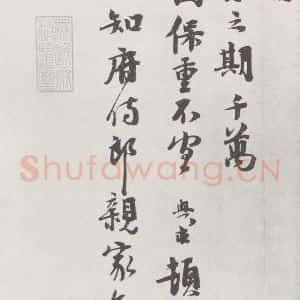 之期千萬
保重不宣 與求 頓
知府侍郎親家
Shufawang.CN